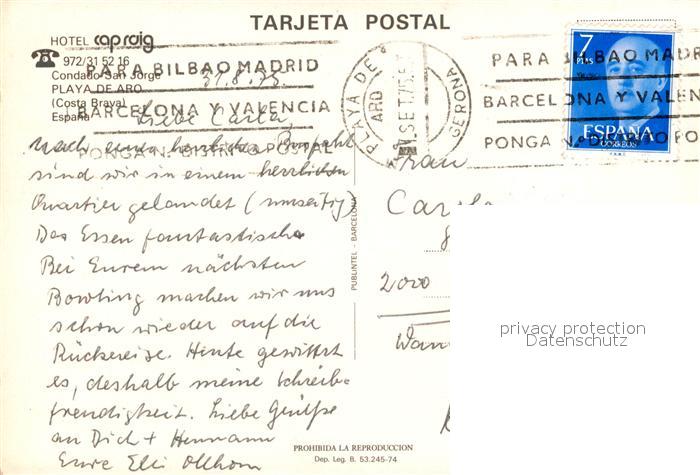 TARJETA POSTAL
HOTEL cap roig
☎ 972/31 52 16
Condado San Jorge
PLAYA DE ARO
(Costa Brava)
España
PARA BILBAO MADRID
BARCELONA Y VALENCIA
PONGA N. DISTRITO POSTAL
31.8.75.
Liebe Carla,
Nach einer herrlichen
sind wir in einem herrlichen
Quartier gelandet (umseitig)
Das Essen fantastisch
Bei Eurem nächsten
Bowling machen wir uns
schon wieder auf die
Rückreise. Heute gewittert
es, deshalb meine Schreib-
freudigkeit. Liebe Grüße
an Dich + Hermann
Eure Elli
PLAYA DE ARO
SET. 75
GERONA
7
PTAS
ESPAÑA
CORREOS
PARA BILBAO MADR
BARCELONA Y VALEN
PONGA N. DISTRITO PO
Frau
2000
PUBLINTEL - BARCELONA
privacy protection
Datenschutz
PROHIBIDA LA REPRODUCCION
Dep. Leg. B. 53.245-74